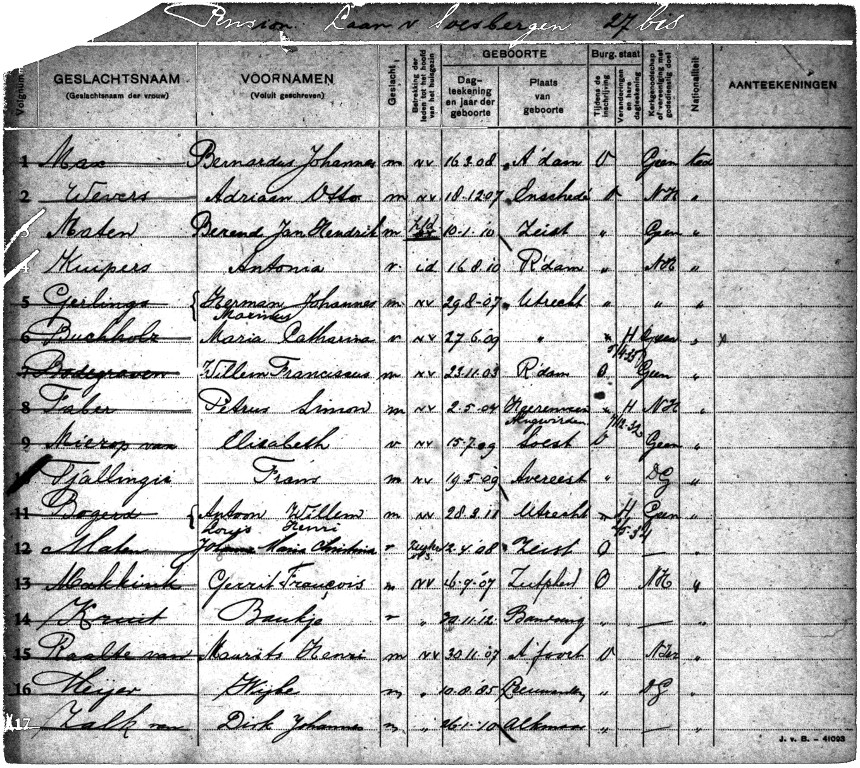 Pension Laan v Soesbergen 27 bis
Volgnum
GESLACHTSNAAM
(Geslachtsnaam der vrouw)
VOORNAMEN
(Voluit geschreven)
Geslacht
Betrekking der leden tot het hoofd van het huisgezin
GEBOORTE
Dag-teekening en jaar der geboorte
Plaats van geboorte
Burg. staat
Tijdens de inschrijving
Veranderingen en hare dagteekening
Kerkgenootschap of vereeniging met godsdienstig doel
Nationaliteit
AANTEEKENINGEN
1 Max Bernardus Johannes m nv 16.3.08 A'dam O Geen
2 Wevers Adriaan Otto m nv 18.12.07 Enschedé O NH "
Maten Berend Jan Hendrik m 10.1.10 Zeist " Geen "
Kuipers Antonia v id 16.8.10 R'dam " NH "
5 Gerlings Herman Johannes m nv 29.8.07 Utrecht " " "
Marinus
6 Buchholz Maria Catharina v nv 27.6.09 " " H Geen "
5/4.35
7 Bodegraven Willem Franciscus m nv 23.11.03 R'dam O Geen "
8 Faber Petrus Simon m nv 2.5.04 Heerenveen " H NH "
Aengwirden
9 Mierop van Elisabeth v nv 15.7.09 Soest O Geen "
Tjallingii Frans m nv 19.5.09 Avereest " DG "
11 Bogers Antoon Willem m nv 28.3.11 Utrecht " H Geen "
Louis Henri
12 Maten Johanna Maria Christina v 12.4.08 Zeist O — "
13 Makkink Gerrit François m nv 16.9.07 Zutphen O NH "
14 Kruit Baukje v " 30.11.12 Bandoeng " — "
15 Raalte van Maurits Henri m nv 30.11.07 A'foort O N.Isr "
16 Meijer Wijbe m " 10.8.85 Leeuwarden " DG "
17 Zalk van Dirk Johannes m " 26.1.10 Alkmaar " — "
J. v. B. – 41093